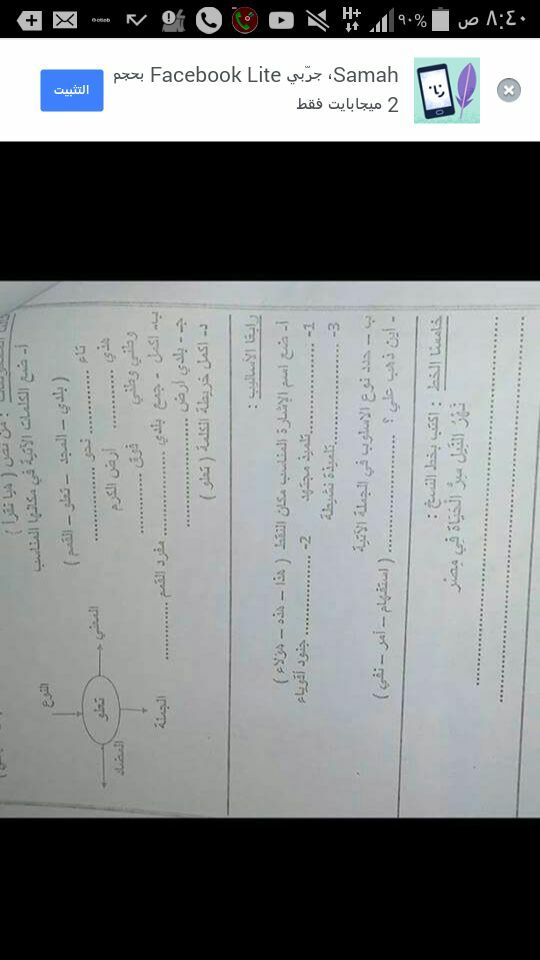 ٨:٤٠ ص
٩٠%
H+
Samah، جرّبي Facebook Lite بحجم
2 ميجابايت فقط
التثبيت
: من نص ( هيا نقرأ )
أ- ضع الكلمات الآتية في مكانها المناسب
( بلادي – المجد – تعلو – القمم )
نحو ..................
هذي .............. أرض الكرم
وطني وطني .............. فوق
ب- اكمل - جمع بلادي .............. مفرد القمم ..............
جـ - بلادي أرض ..................
د- اكمل خريطة الكلمة ( تعلو )
النوع
المعنى
تعلو
المضاد
الجملة
رابعا الأساليب :
أ- ضع اسم الإشارة المناسب مكان النقط ( هذا – هذه – هؤلاء )
1- ..................تلميذ مجتهد 2- ..................جنود أقوياء
3- ..................تلميذة نشيطة
ب – حدد نوع الأسلوب في الجملة الآتية
- أين ذهب علي ؟ .................. ( استفهام – أمر – نفي )
خامسا الخط : اكتب بخط النسخ :
نَهْرُ النِّيلِ سِرُّ الْحَيَاةِ فِي مِصْرَ